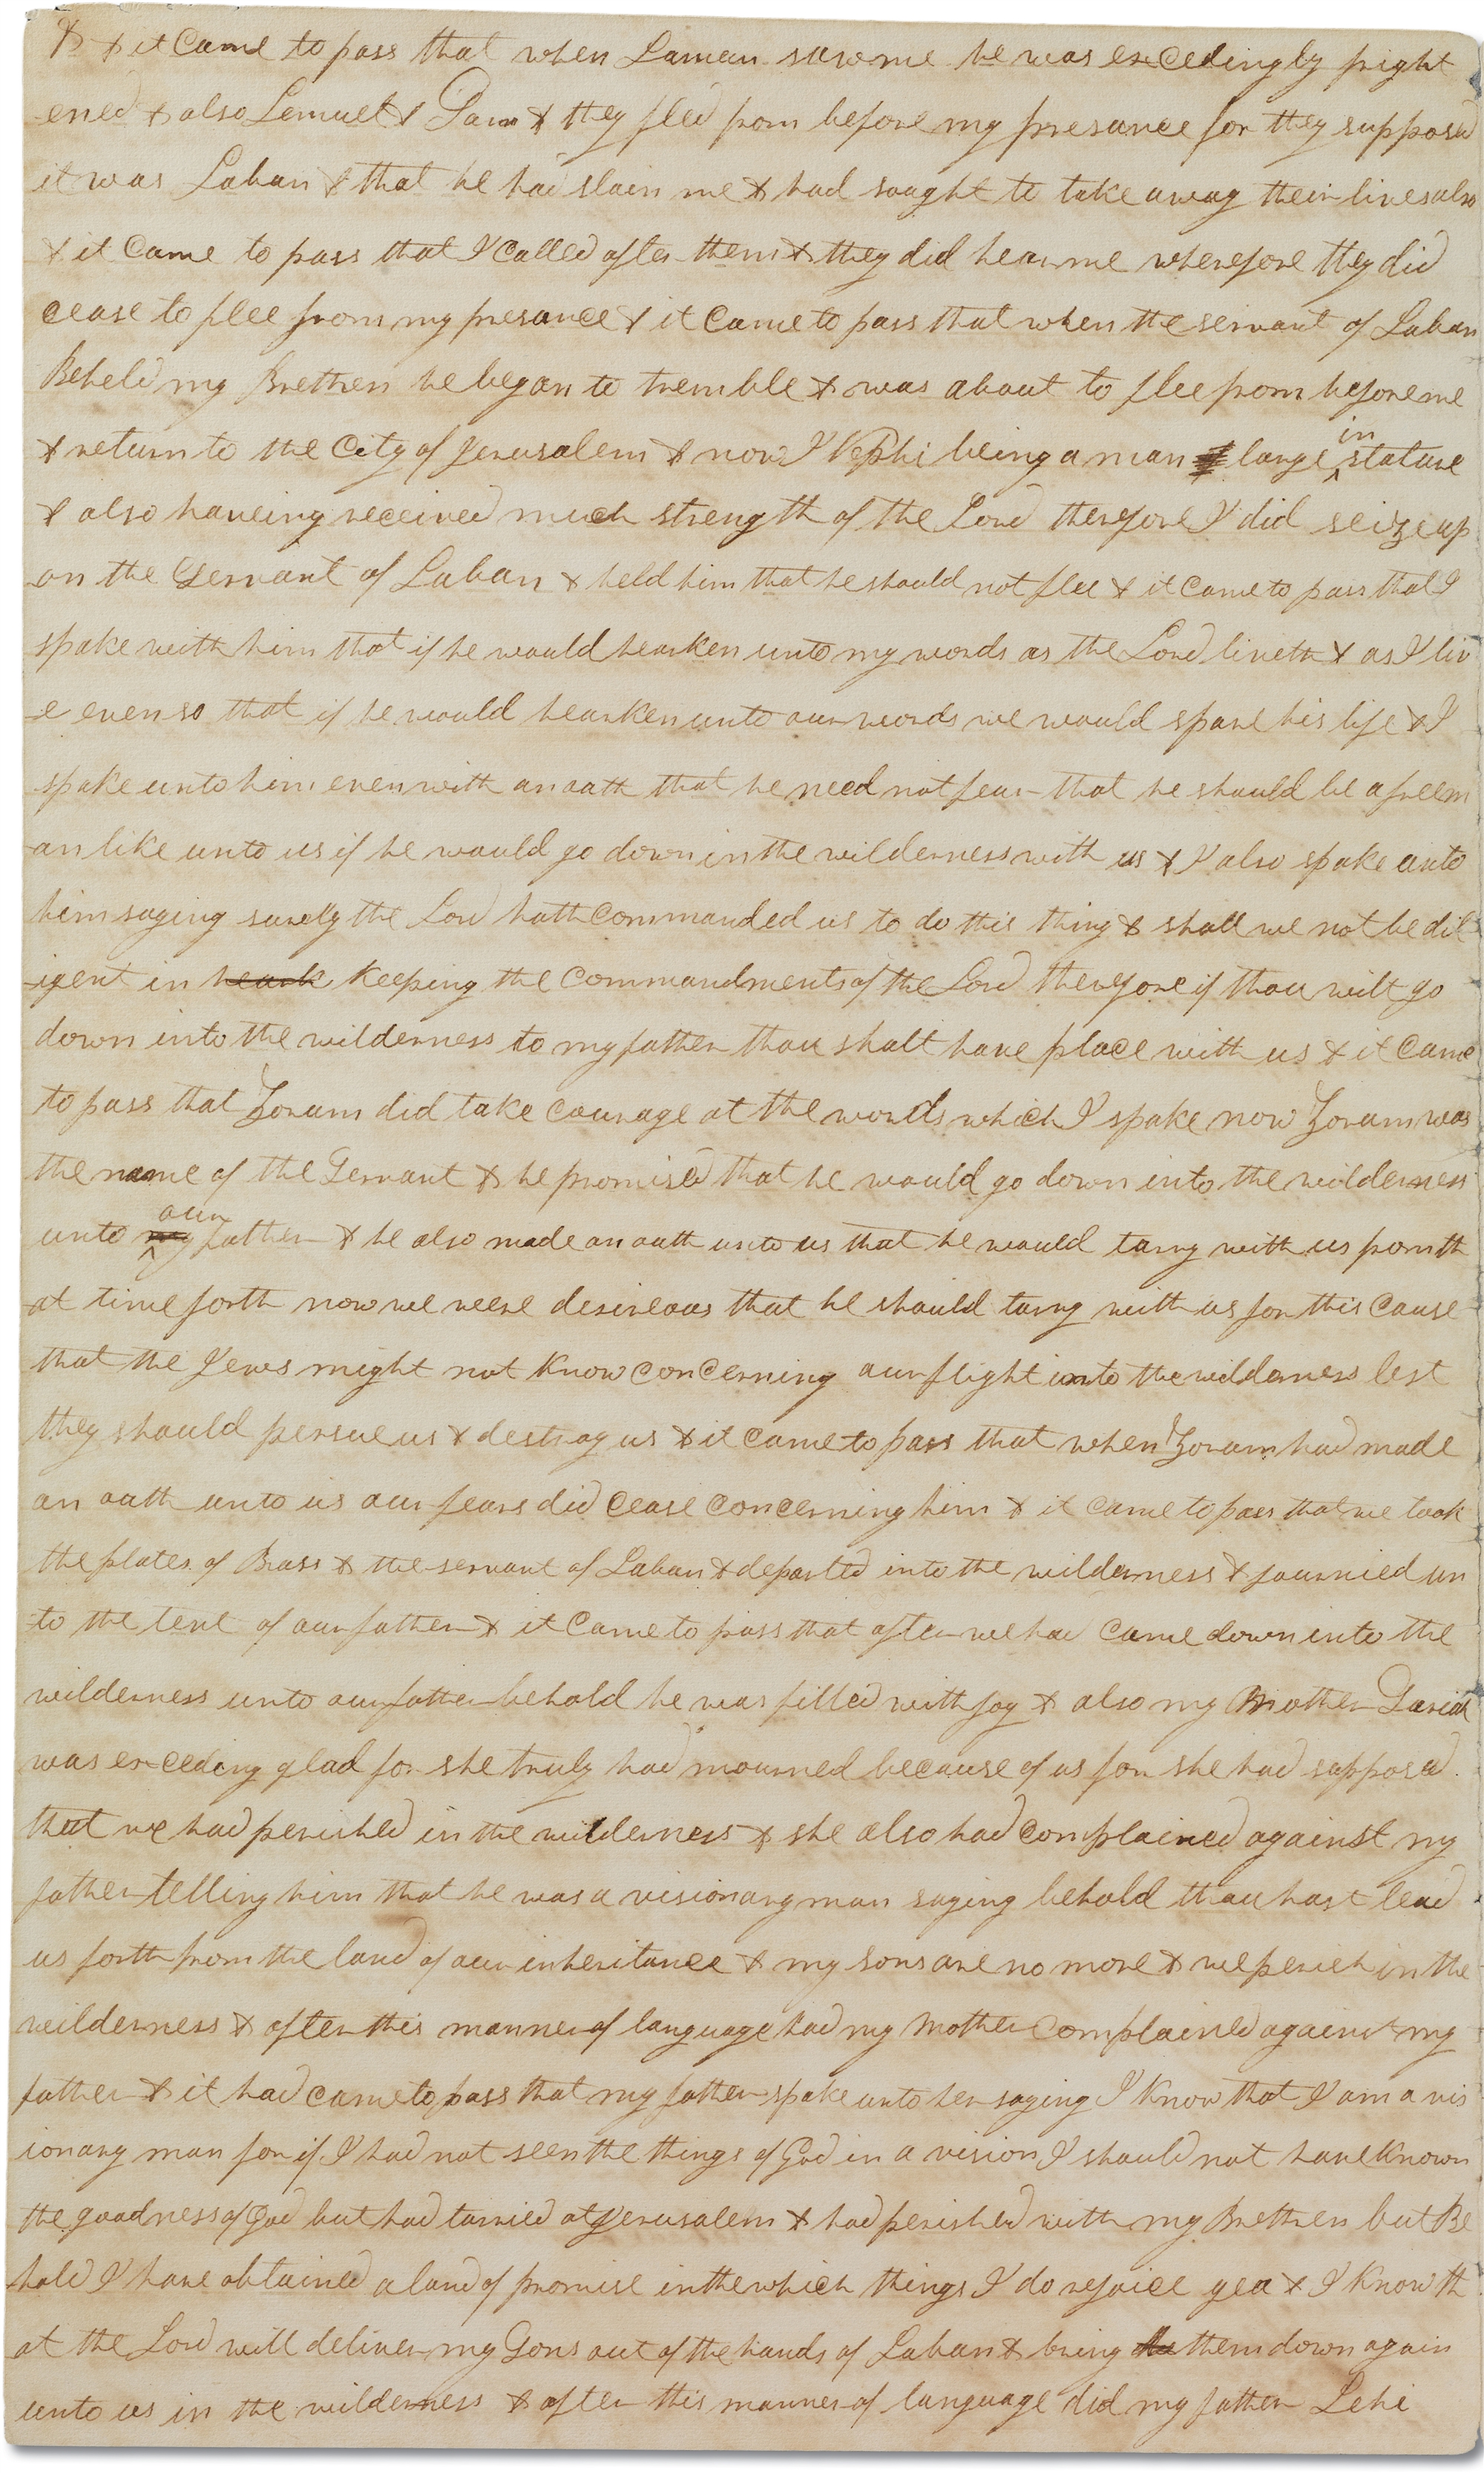 & & it Came to pass that when Laman saw me he was excedingly fright
ened & also Lemuel & Sam & they fled from before my presance for they supposed
it was Laban & that he had slain me & had sought to take away their lives also
& it Came to pass that I Called after them & they did hear me wherefore they did
cease to flee from my presance & it Came to pass that when the servant of Laban
Beheld my Brethren he began to tremble & was about to flee from before me
& return to the City of Jerusalem & now I Nephi being a man large in stature
& also haveing received much strength of the Lord therefore I did seize up
on the Servant of Laban & held him that he should not flee & it Came to pass that I
spake with him that if he would hearken unto my words as the Lord liveth & as I liv
e even so that if he would hearken unto our words we would spare his life & I
spake unto him even with an oath that he need not fear that he should be a freem
an like unto us if he would go down in the wilderness with us & I also spake unto
him saying surely the Lord hath Commanded us to do this thing & shall we not be dil
igent in heark keeping the Commandments of the Lord therefore if thou wilt go
down into the wilderness to my father thou shalt have place with us & it Came
to pass that Zoram did take Courage at the words which I spake now Zoram was
the name of the Servant & he promised that he would go down into the wilderness
unto my our father & he also made an oath unto us that he would tarry with us from th
at time forth now we were desireous that he should tarry with us for this Cause
that the Jews might not Know ConCerning our flight into the wilderness lest
they should persue us & destroy us & it Came to pass that when Zoram had made
an oath unto us our fears did Cease Concerning him & it Came to pass that we took
the plates of Brass & the servant of Laban & departed into the wilderness & journied un
to the tent of our father & it Came to pass that after we had Came down into the
wilderness unto our father behold he was filled with joy & also my Mother Sariah
was exceding glad for she truly had mourned because of us for she had supposed
that we had perished in the wilderness & she also had Complained against my
father telling him that he was a visionary man saying behold thou hast lead
us forth from the land of our inheritance & my sons are no more & we perish in the
wilderness & after this manner of language had my Mother Complained against my
father & it had Came to pass that my father spake unto her saying I Know that I am a vis
ionary man for if I had not seen the things of God in a vision I should not have Known
the goodness of God but had tarried at Jerusalem & had perished with my Brethren but Be
hold I have obtained a land of promise in the which things I do rejoice yea & I Know th
at the Lord will deliver my Sons out of the hands of Laban & bring them down again
unto us in the wilderness & after this manner of language did my father Lehi